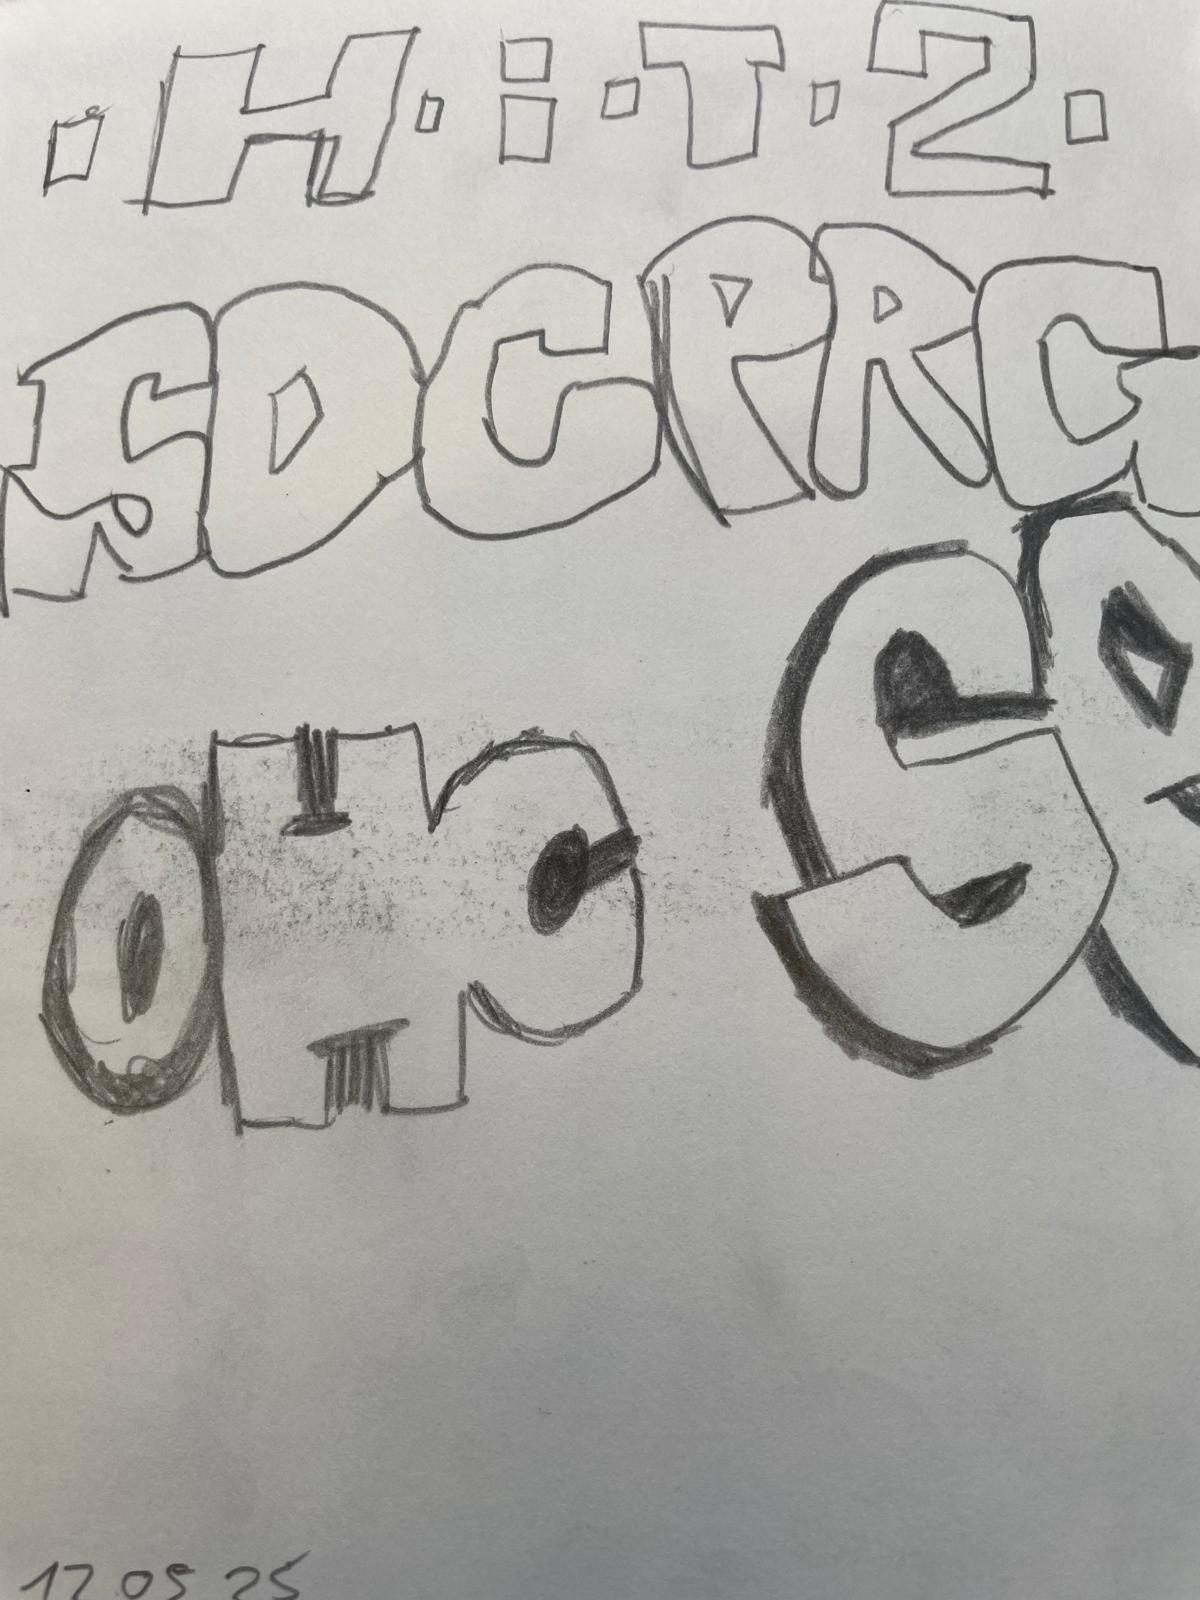 . H . i . T . 2 .
SDCPRG
OHC SR
12 05 25